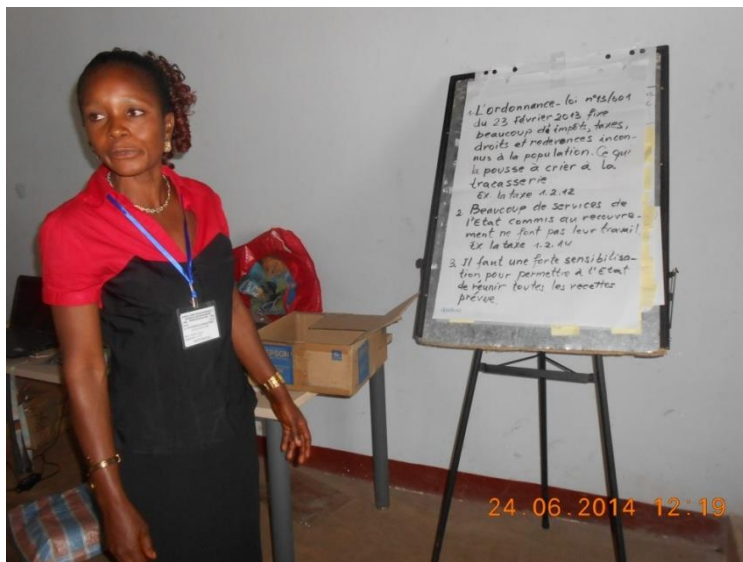 1. L'ordonnance-loi n°13/001
du 23 février 2013 fixe
beaucoup d'impôts, taxes,
droits et redevances incon-
nus à la population. Ce qui
la pousse à crier à la
tracasserie
Ex la taxe 1.2.12
2. Beaucoup de services de
l'Etat commis au recouvre-
ment ne font pas leur travail.
Ex la taxe 1.2.14
3. Il faut une forte sensibilisa-
tion pour permettre à l'Etat
de réunir toutes les recettes
prévue.
24.06.2014 12:19